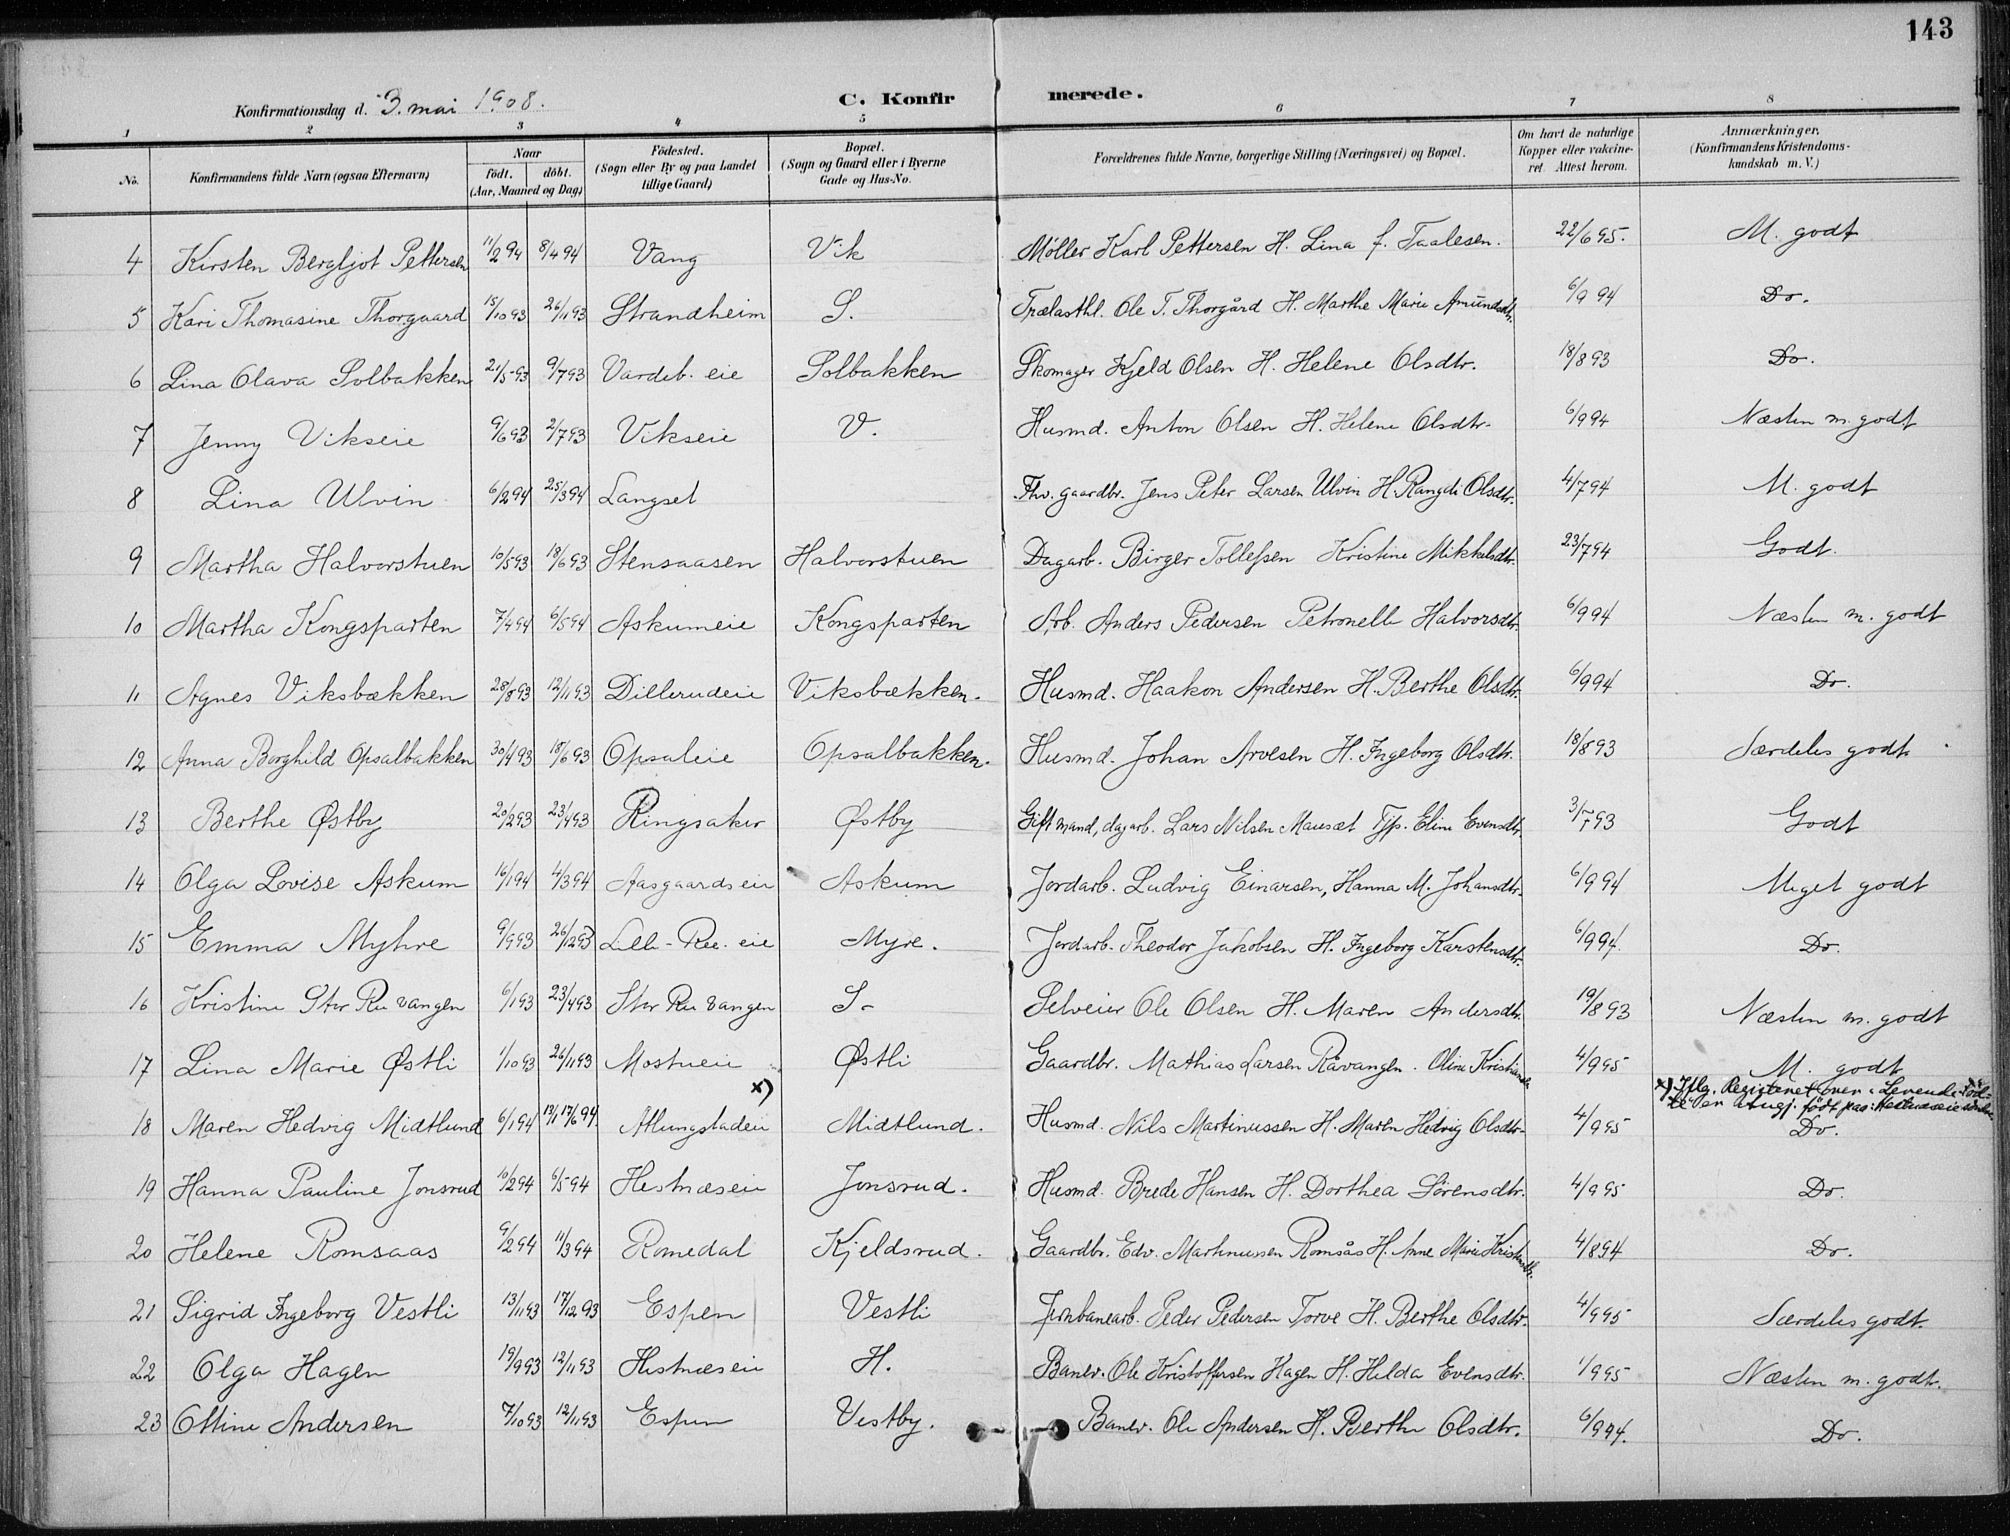 143
Konfirmationsdag d. 3. mai 1908. C. Konfirmerede.
1 2 3 4 5 6 7 8
No. Konfirmandens fulde Navn (ogsaa Efternavn) Naar födt. döbt. (Aar, Maaned og Dag) Födested. (Sogn eller By og paa Landet tillige Gaard) Bopæl. (Sogn og Gaard eller i Byerne Gade og Hus-No. Forældrenes fulde Navne, borgerlige Stilling (Næringsvei) og Bopæl. Om havt de naturlige Kopper eller vaccineret. Attest herom. Anmærkninger. (Konfirmandens Kristendomskundskab m. V.)
4 Kirsten Bergljot Pettersen 11/2 94 8/4 94 Vang Vik Møller Karl Pettersen H. Lina f. Taalesen. 22/6 95. M. godt
5 Kari Thomasine Thorgaard 15/10 93 26/11 93 Strandheim S. Trælasthl. Ole T. Thorgård H. Marthe Marie Amundsdtr. 6/9 94 Do.
6 Lina Olava Solbakken 21/5 93 9/7 93 Vardeb. eie Solbakken Skomager Kjeld Olsen H. Helene Olsdtr. 18/8 93 Do.
7 Jenny Vikseie 9/6 93 2/7 93 Vikseie V. Husmd. Anton Olsen H. Helene Olsdtr. 6/9 94 Næsten m. godt
8 Lina Ulvin 6/2 94 25/3 94 Langset Fhv. gaardbr. Jens Peter Larsen Ulvin H. Rangdi Olsdtr. 4/7 94 M. godt
9 Martha Halvorstuen 10/5 93 18/6 93 Stensaasen Halvorstuen Dagarb. Birger Tollefsen Kristine Mikkelsdtr. 23/7 94 Godt.
10 Martha Kongsparten 7/4 94 6/5 94 Askumeie Kongsparten Arb. Anders Pedersen Petronelle Halvorsdtr. 6/9 94 Næsten m. godt
11 Agnes Viksbækken 28/8 93 12/11 93 Dillerudeie Viksbækken. Husmd. Haakon Andersen H. Berthe Olsdtr. 6/9 94 Do.
12 Anna Borghild Opsalbakken 30/4 93 18/6 93 Opsaleie Opsalbakken. Husmd. Johan Arvesen H. Ingeborg Olsdtr. 18/8 93 Særdeles godt
13 Berthe Østby 20/2 93 23/4 93 Ringsaker Østby Gift mand, dagarb. Lars Nilsen Mausæt Tjp. Eline Evensdtr. 3/7 93 Godt
14 Olga Lovise Askum 16/1 94 4/3 94 Aasgaardseie Askum Jordarb. Ludvig Einarsen, Hanna M. Johansdtr. 6/9 94 Meget godt
15 Emma Myhre 9/9 93 26/12 93 Lille-Ree-eie Myre. Jordarb. Theodor Jakobsen H. Ingeborg Karstensdtr. 6/9 94. Do.
16 Kristine Stor Ru vangen 6/1 93 23/4 93 Stor Ru vangen S. Selveier Ole Olsen H. Maren Andersdtr. 19/8 93 Næsten m. godt
17 Lina Marie Østli 1/10 93 26/11 93 Mostueie Østli Gaardbr. Mathias Larsen Råvangen. Oline Kristiansdtr 4/9 95 M. godt
x) Iflg. Registeret over "Levende fød- te" er angj. født paa:
18 Maren Hedvig Midtlund 6/1 94 17/6 94. Atlungstadeie x) Midtlund. Husmd. Nils Martinussen H. Maren Hedvig Olsdtr. 4/9 95 Do.
19 Hanna Pauline Jonsrud 10/2 94 6/5 94 Hestnæseie Jonsrud. Husmd. Brede Hansen H. Dorthea Sørensdtr. 4/9 95 Do.
20 Helene Romsaas 9/2 94 11/3 94 Romedal Kjeldsrud. Gaardbr. Edv. Martinussen Romsås H. Anne Marie Kristiansdtr. 4/8 94 Do.
21 Sigrid Ingeborg Vestli 13/11 93 17/12 93 Espen Vestli Jernbanearb. Peder Pedersen Torve H. Berthe Olsdtr. 4/9 95 Særdeles godt.
22 Olga Hagen 19/9 93 12/11 93 Hestnæseie H. Banev. Ole Kristoffersen Hagen H. Hilda Evensdtr. 1/9 95 Næsten m. godt.
23 Ottine Andersen 7/10 93 12/11 93 Espen Vestby. Banev. Ole Andersen H. Berthe Olsdtr. 6/9 94. Do.